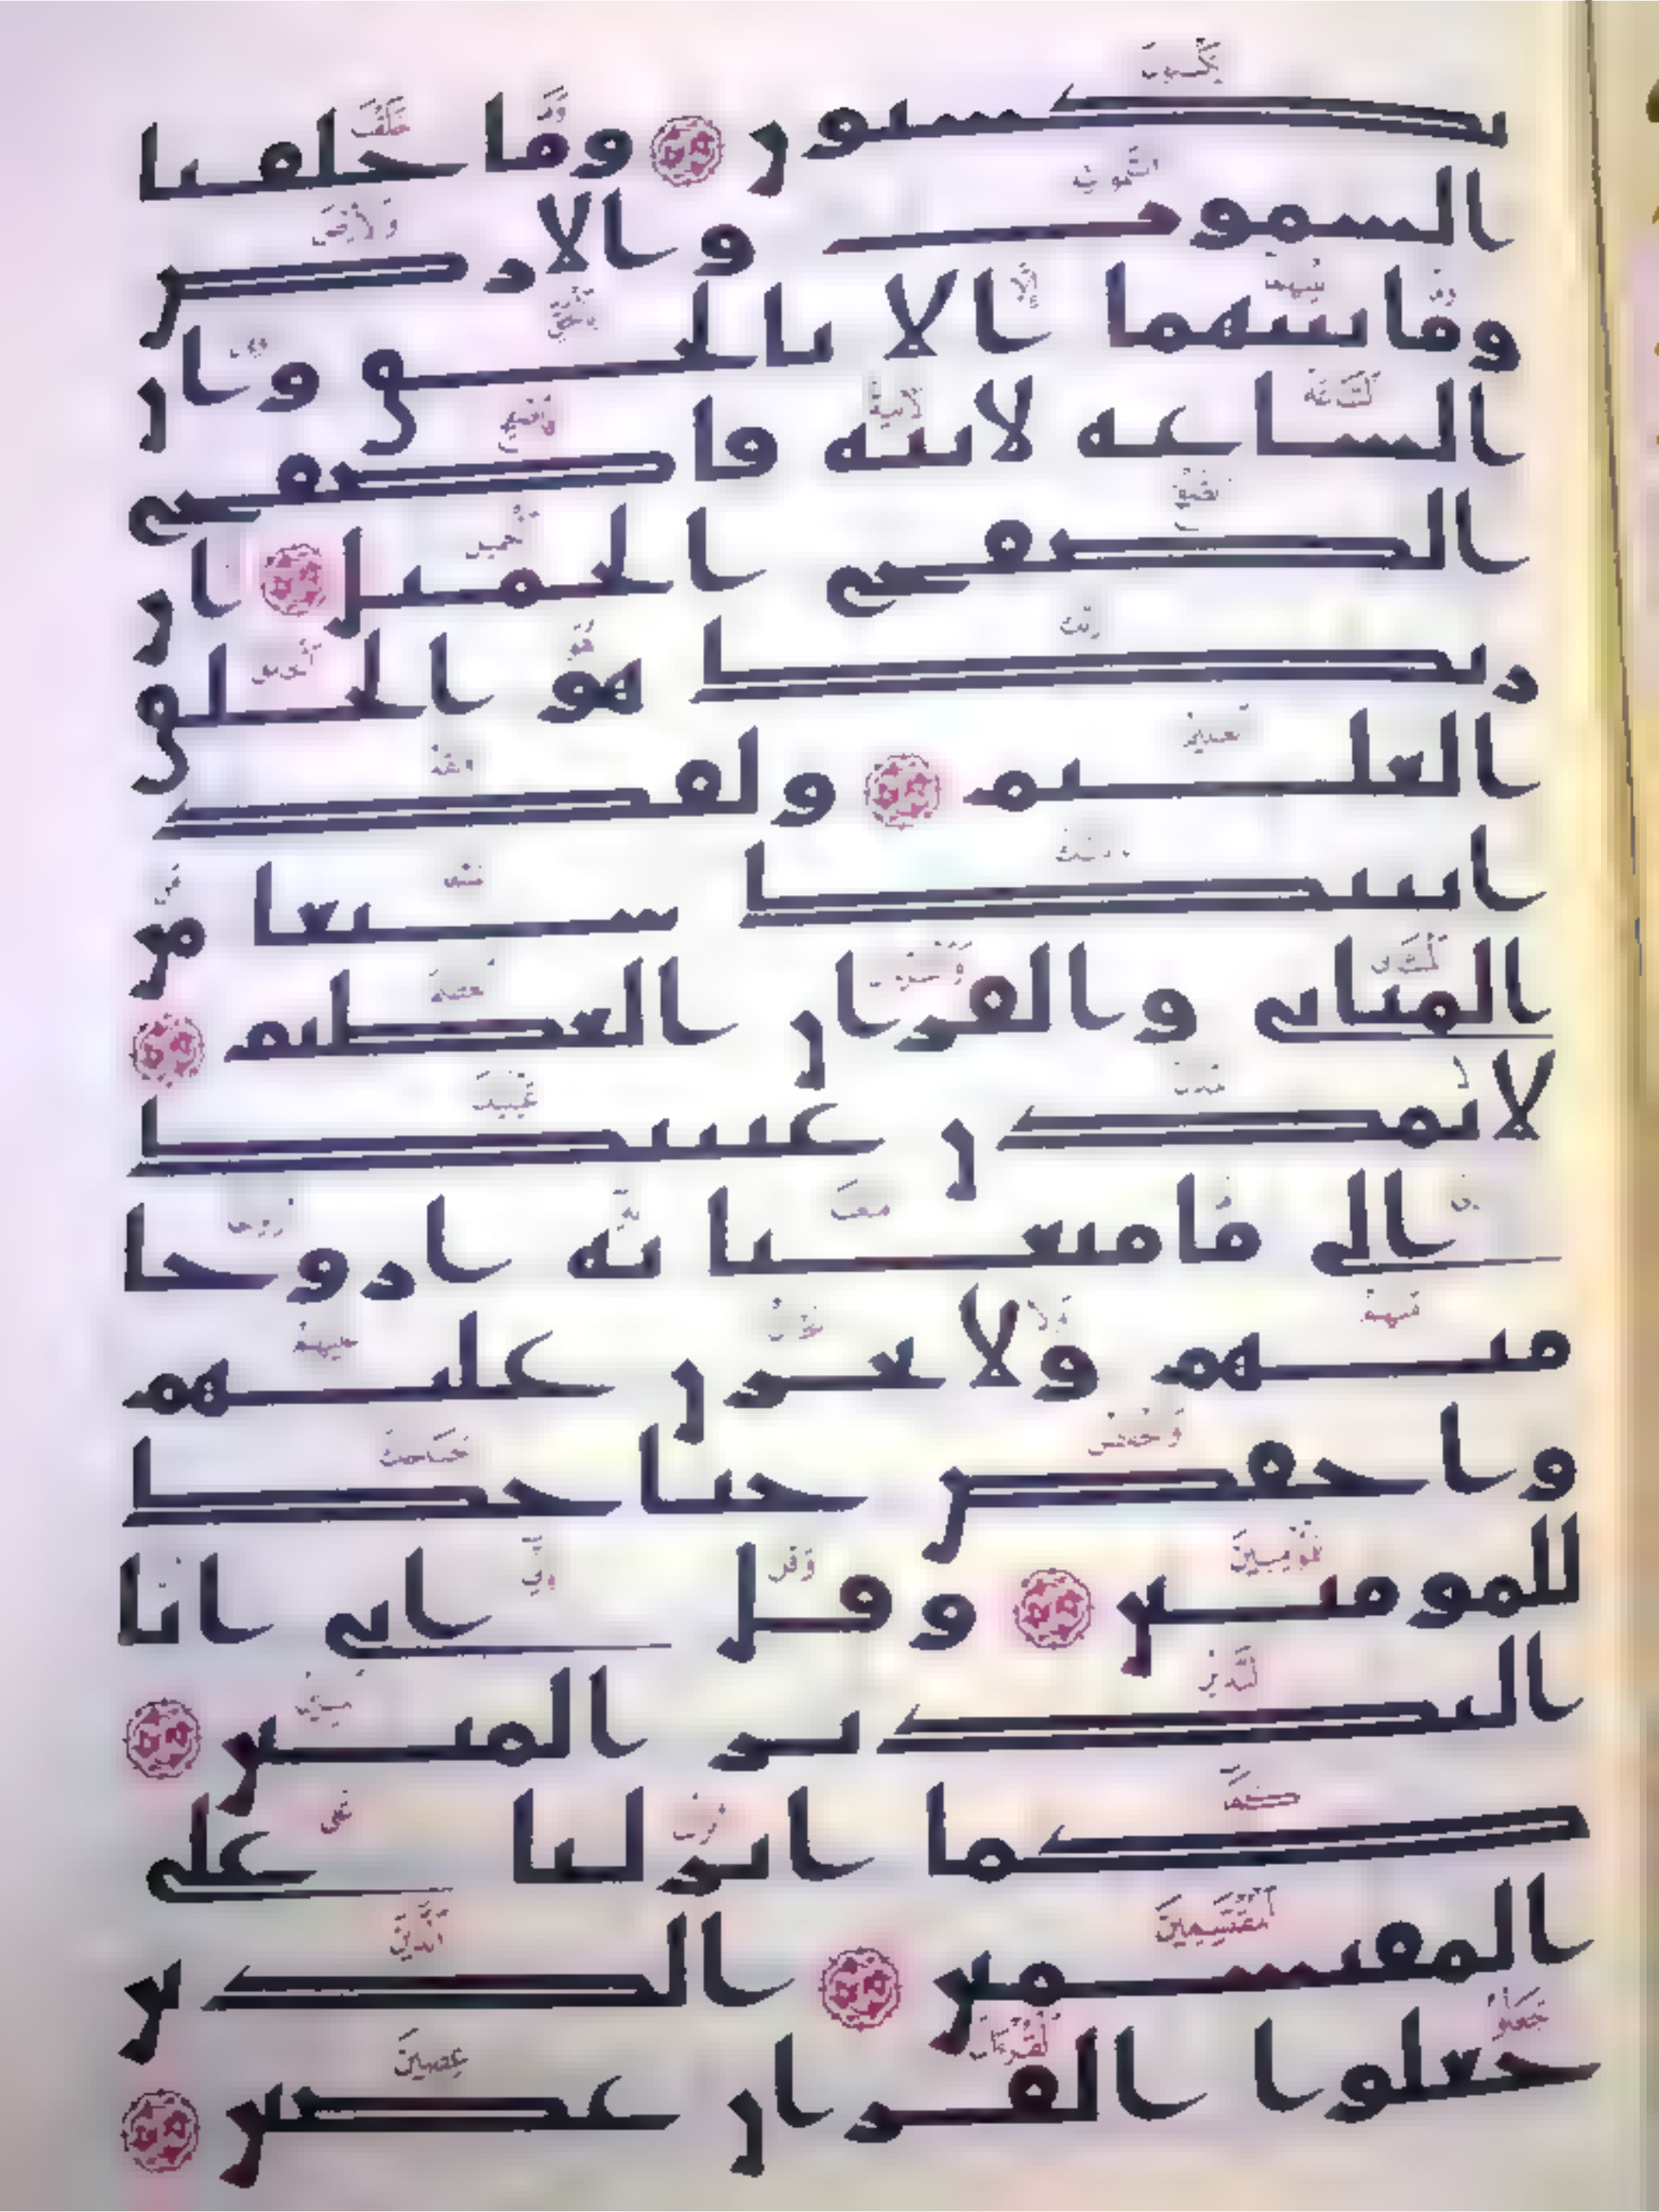 يكسبون وما خلقنا
السموت والارض
وما بينهما الا بالحق وان
الساعة لاتية فاصفح
الصفح الجميل ان
ربك هو الخلق
العليم ولقد
اتينك سبعا من
المثاني والقران العظيم
لا تمدن عينيك
الى ما متعنا به ازوجا
منهم ولا تحزن عليهم
واخفض جناحك
للمومنين وقل اني انا
النذير المبين
كما انزلنا على
المقتسمين الذين
جعلوا القران عضين